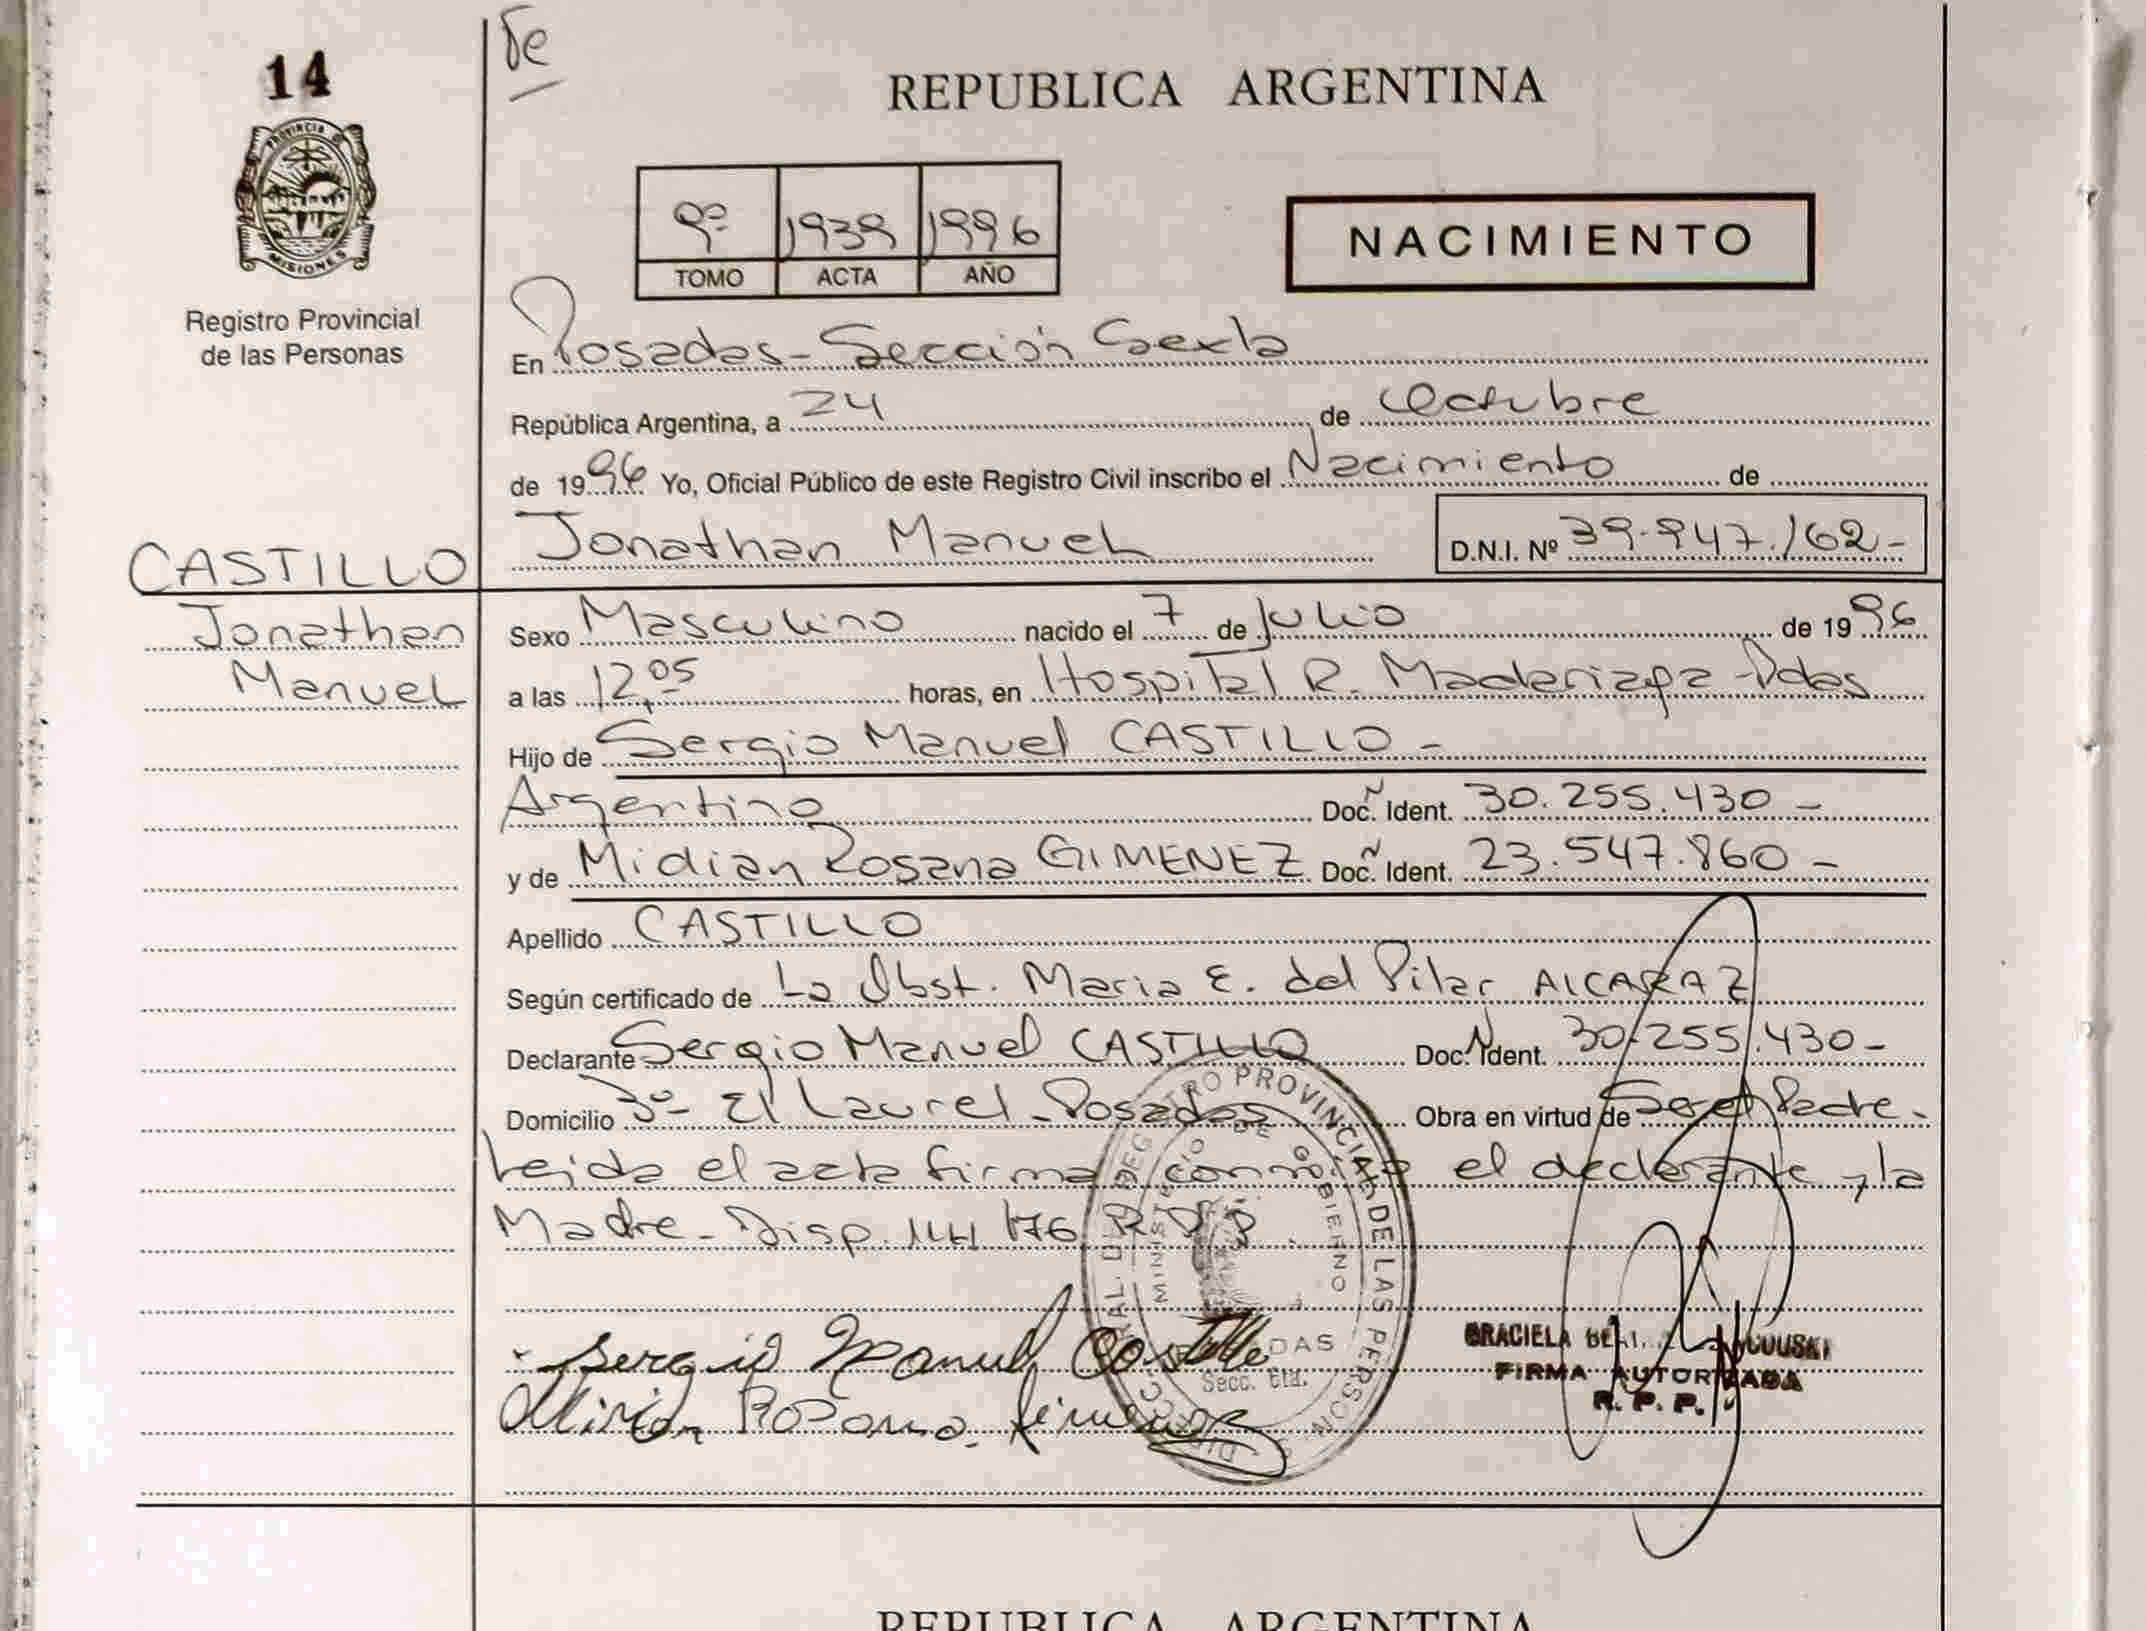 14
REPUBLICA ARGENTINA
PROVINCIA DE
MISIONES
Registro Provincial
de las Personas
9º 1939 1996
TOMO ACTA AÑO
NACIMIENTO
En Posadas - Sección Sexta
República Argentina, a 24 de Octubre
de 1996 Yo, Oficial Público de este Registro Civil inscribo el Nacimiento de
Jonathan Manuel D.N.I. Nº 39.947.162-
CASTILLO
Jonathan
Manuel
Sexo Masculino nacido el 7 de Julio de 1996
a las 12,05 horas, en Hospital R. Madariaga - Pdas
Hijo de Sergio Manuel CASTILLO -
Argentino Doc. Ident. 30.255.430 -
y de Midian Rosana GIMENEZ Doc. Ident. 23.547.860 -
Apellido CASTILLO
Según certificado de La Obst. Maria E. del Pilar ALCARAZ
Declarante Sergio Manuel CASTILLO Doc. Ident. 30.255.430 -
Domicilio Bº El Laurel - Posadas Obra en virtud de Ser el Padre -
Leida el acta firma conmigo el declarante y la
Madre - Disp. 144/76 R.P.P.
REGISTRO PROVINCIAL DE LAS PERSONAS
MINISTERIO DE GOBIERNO
Secc. 6ta.
Sergio Manuel Castillo
Mirian Rosana Jimenez
GRACIELA
FIRMA AUTORIZADA
R. P. P.
REPUBLICA ARGENTINA